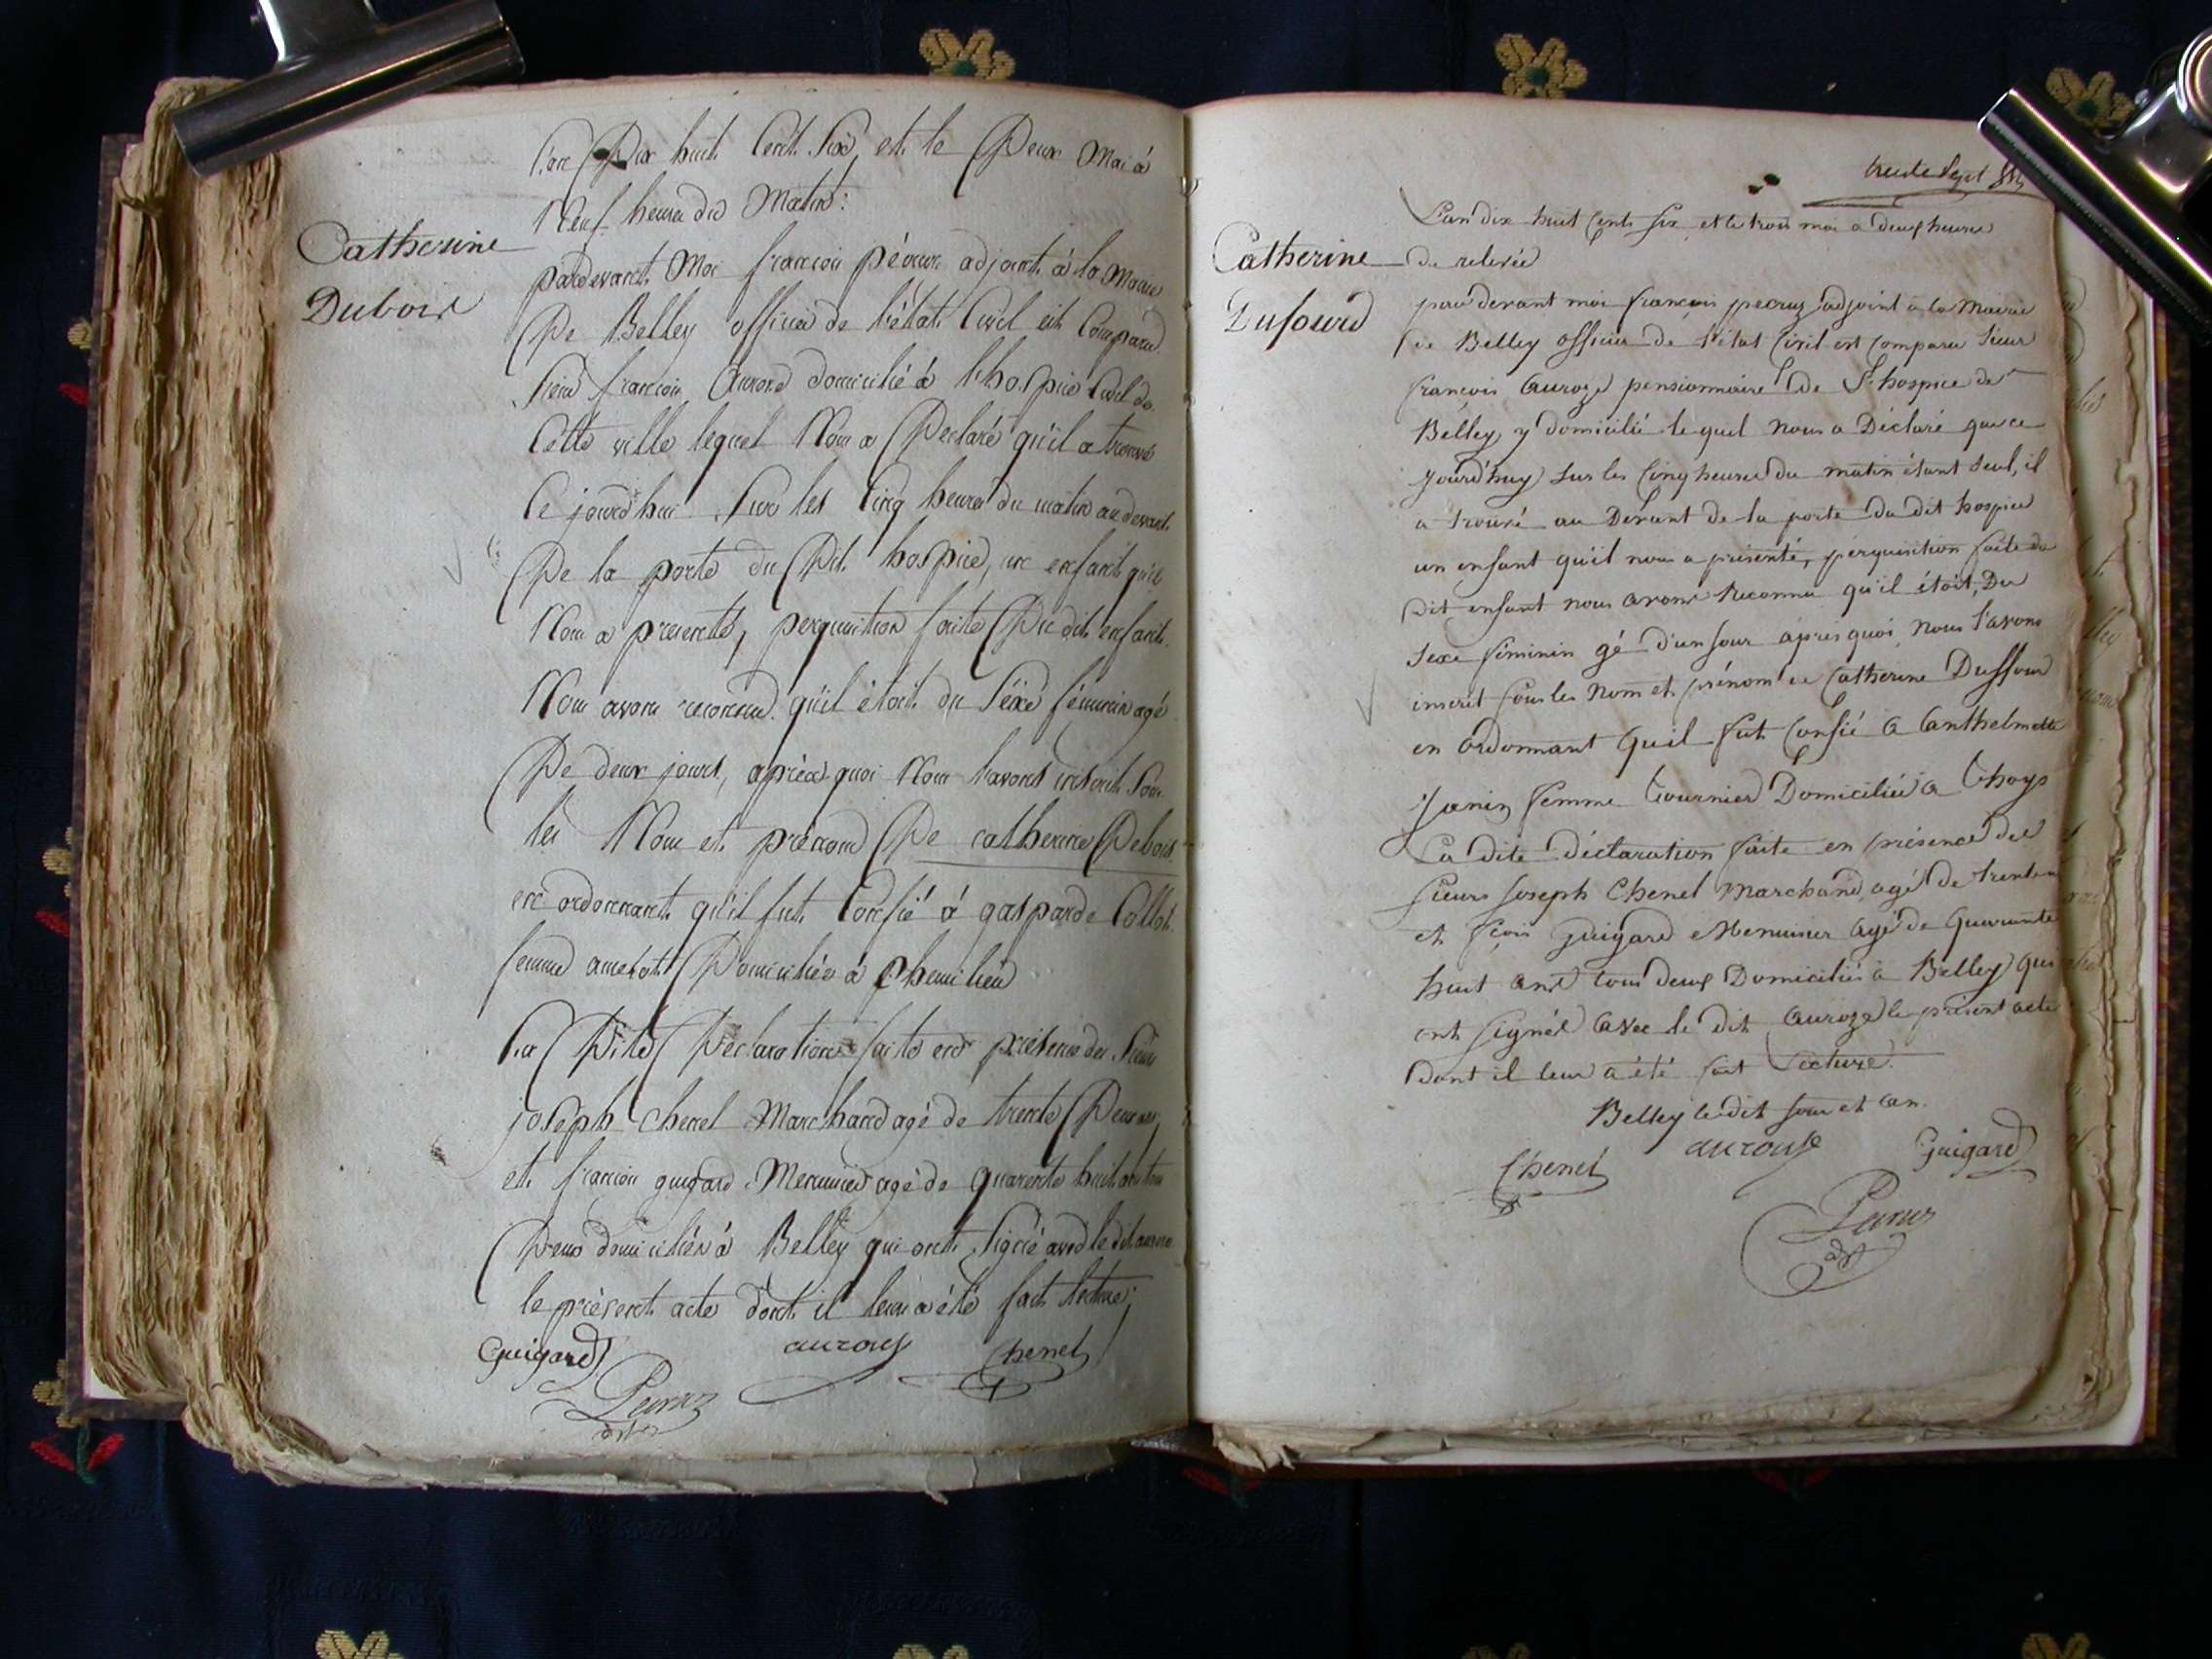 Catherine
Dubois
L'an Dix huit Cent Six et le Deux Mai à
Neuf heures du Matin:
pardevant Moi francois pécruz adjoint à la Mairie
De Belley officier de l'état Civil est Comparu
Sieur francois Auroze domicilié à l'hospice Civil de
Cette ville lequel Nous a Declaré qu'il a trouvé
Ce jourd'hui Sur les Cinq heures du matin au devant
De la porte du Dit hospice, un enfant qu'il
Nous a présenté, perquisition faite Du dit enfant
Nous avons reconnu qu'il étoit du Séxe féminin agé
De deux jours, après quoi Nous l'avons inscrit Sous
les Nom et prénom De catherine Debois
en ordonnant qu'il fut Confié à gasparde Collot
femme Domiciliée à Chemilieu
La Dite Déclaration faite en présence des Sieurs
joseph Chenel Marchand agé de trente Deux ans
et francois guigard Menuisier agé de quarente huit ans tous
Deux domiciliés à Belley qui ont Signé avec le dit auroze
le présent acte dont il leur a été fait lecture;
Guigard aurouze Chenel
Pecruz
adjt
trente Sept
Catherine
Dufourd
L'an dix huit Cent Six et le trois mai a deux heures
de relevée
par devant moi françois pecruz adjoint à la Mairie
de Belley officier de l'état Civil est Comparu Sieur
françois Auroze pensionnaire de L'hospice de
Belley y domicilié lequel Nous a Déclaré que ce
jourd'huy Sur les Cinq heures du matin étant Seul, il
a trouvé au Devant de la porte du dit hospice
un enfant qu'il nous a présenté, perquisition faite du
dit enfant nous avons Reconnu qu'il étoit, Du
Sexe féminin gé d'un Jour après quoi Nous l'avons
inscrit Sous les Nom et prénom de Catherine Duffour
en Ordonnant Quil fut Confié a Canthelmette
Janin femme Tournier Domiciliée a Thoys
La dite déclaration faite en présence des
Sieurs Joseph Chenel Marchand, agé de trente
et fçois Guigard Menuisier Agé de Quarante
huit ans tous deux Domiciliés à Belley qui
ont Signés avec le dit Auroze le présent acte
dont il leur a été fait Lecture.
Belley le dit Jour et an.
Chenel aurouze Guigard
Pecruz
adjt